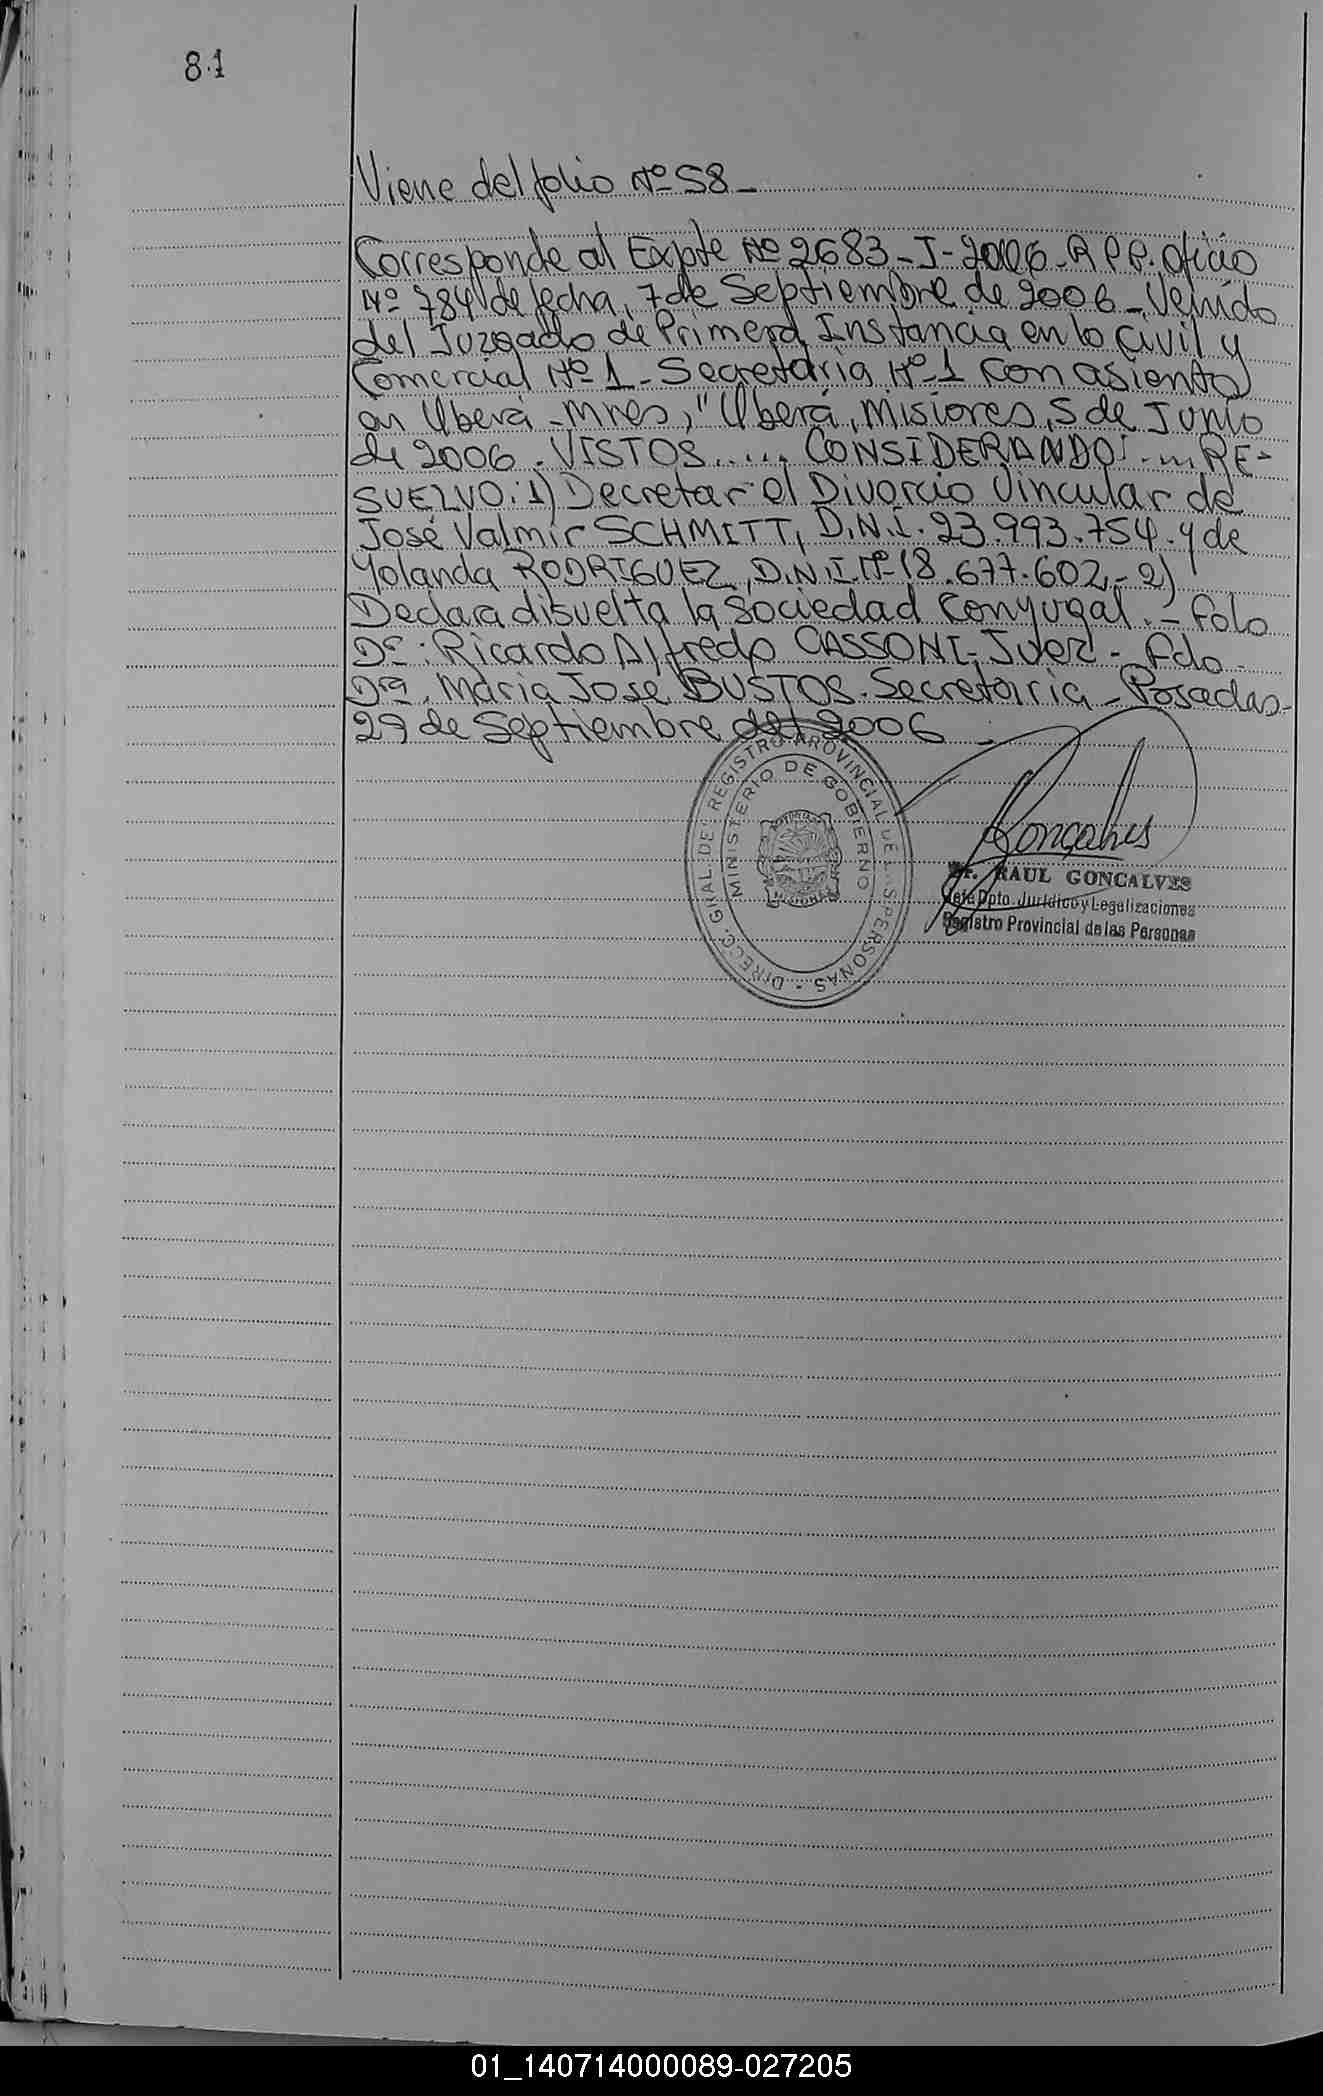 81
Viene del folio Nº 58 -
Corresponde al Expte Nº 2683 - J - 2006 - R P P. oficio
Nº 784 de fecha, 7 de Septiembre de 2006 - Venido
del Juzgado de Primera Instancia en lo Civil y
Comercial Nº 1 - Secretaria Nº 1 con asiento
en Oberá - Mnes, "Oberá, Misiones, 5 de Junio
de 2006. VISTOS..... CONSIDERANDO: .... RE-
SUELVO: 1) Decretar el Divorcio Vincular de
José Valmir SCHMITT, D.N.I. 23.993.754 - y de
Yolanda RODRIGUEZ, D.N.I. Nº 18.677.602, - 2)
Declara disuelta la Sociedad Conyugal. - Fdo
Dr. Ricardo Alfredo CASSONI - Juez - Fdo -
Dra. Maria José BUSTOS - Secretaria - Posadas -
27 de Septiembre del 2006 -
DIRECC. GRAL. DEL REGISTRO PROVINCIAL DE LAS PERSONAS -
MINISTERIO DE GOBIERNO
MISIONES
Goncalves
Dr. RAUL GONCALVES
Jefe Dpto. Jurídico y Legalizaciones
Registro Provincial de las Personas
01_140714000089-027205